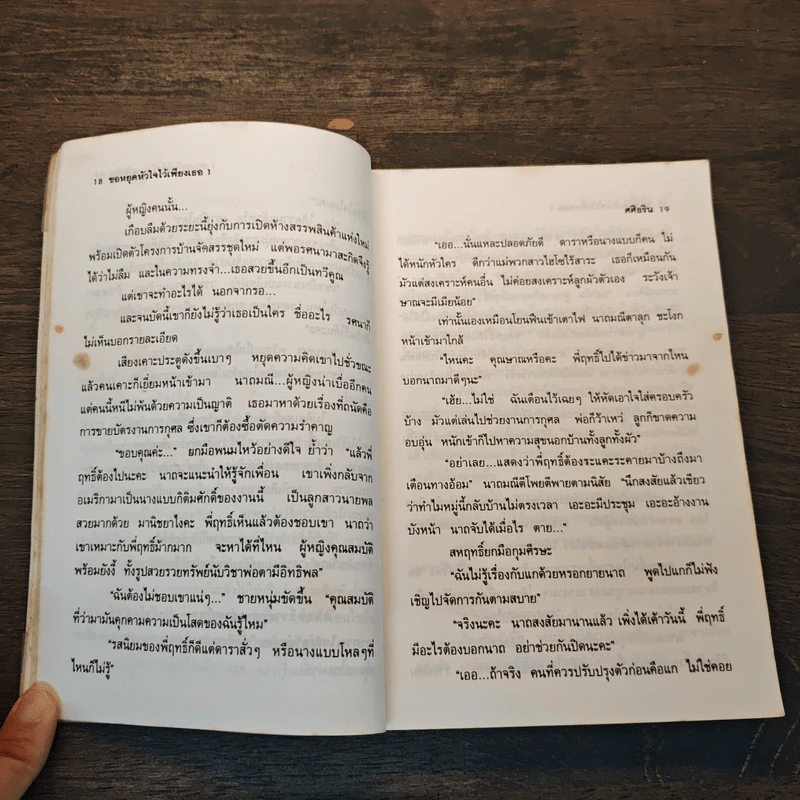 18 ขอหยุดหัวใจไว้เพียงเธอ 1
ผู้หญิงคนนั้น...
เกือบลืมด้วยระยะนี้ยุ่งกับการเปิดห้างสรรพสินค้าแห่งใหม่
พร้อมเปิดตัวโครงการบ้านจัดสรรชุดใหม่ แต่พอรศนามาสะกิดจึงรู้
ได้ว่าไม่ลืม และในความทรงจำ...เธอสวยขึ้นอีกเป็นทวีคูณ
แต่เขาจะทำอะไรได้ นอกจากรอ...
และจนบัดนี้เขาก็ยังไม่รู้ว่าเธอเป็นใคร ชื่ออะไร รศนาก็
ไม่เห็นบอกรายละเอียด
เสียงเคาะประตูดังขึ้นเบาๆ หยุดความคิดเขาไปชั่วขณะ
แล้วคนเคาะก็เยี่ยมหน้าเข้ามา นาถมณี...ผู้หญิงน่าเบื่ออีกคน
แต่คนนี้หนีไม่พ้นด้วยความเป็นญาติ เธอมาหาด้วยเรื่องที่ถนัดคือ
การขายบัตรงานการกุศล ซึ่งเขาก็ต้องซื้อตัดความรำคาญ
“ขอบคุณค่ะ...” ยกมือพนมไหว้อย่างดีใจ ย้ำว่า “แล้วพี่
ฤทธิ์ต้องไปนะคะ นาถจะแนะนำให้รู้จักเพื่อน เขาเพิ่งกลับจาก
อเมริกามาเป็นนางแบบกิติมศักดิ์ของงานนี้ เป็นลูกสาวนายพล
สวยมากด้วย มานิชยาไงคะ พี่ฤทธิ์เห็นแล้วต้องชอบเขา นาถว่า
เขาเหมาะกับพี่ฤทธิ์มากมาก จะหาได้ที่ไหน ผู้หญิงคุณสมบัติ
พร้อมยังงี้ ทั้งรูปสวยรวยทรัพย์นับวิชาพ่อตามีอิทธิพล”
“ฉันต้องไม่ชอบเขาแน่ๆ...” ชายหนุ่มขัดขึ้น “คุณสมบัติ
ที่ว่ามามันคุกคามความเป็นโสดของฉันรู้ไหม”
“รสนิยมของพี่ฤทธิ์ก็ดีแต่ดาราสั่วๆ หรือนางแบบโหลๆที่
ไหนก็ไม่รู้”
ศศิอริน 19
“เออ...นั่นแหละปลอดภัยดี ดาราหรือนางแบบก็คน ไม่
ได้หนักหัวใคร ดีกว่าแม่พวกสาวไฮโซไร้สาระ เธอก็เหมือนกัน
มัวแต่สงเคราะห์คนอื่น ไม่ค่อยสงเคราะห์ลูกผัวตัวเอง ระวังเจ้า
ษาณจะมีเมียน้อย”
เท่านั้นเองเหมือนโยนฟืนเข้าเตาไฟ นาถมณีตาลุก ชะโงก
หน้าเข้ามาใกล้
“ไหนคะ คุณษาณหรือคะ พี่ฤทธิ์ไปได้ข่าวมาจากไหน
บอกนาถมาดีๆนะ”
“เฮ้ย...ไม่ใช่ ฉันเตือนไว้เฉยๆ ให้หัดเอาใจใส่ครอบครัว
บ้าง มัวแต่เล่นไปช่วยงานการกุศล พ่อก็ว้าเหว่ ลูกก็ขาดความ
อบอุ่น หนักเข้าก็ไปหาความสุขนอกบ้านทั้งลูกทั้งผัว”
“อย่าเลย...แสดงว่าพี่ฤทธิ์ต้องระแคะระคายมาบ้างถึงมา
เตือนทางอ้อม” นาถมณีตีโพยตีพายตามนิสัย “นึกสงสัยแล้วเชียว
ว่าทำไมหมู่นี้กลับบ้านไม่ตรงเวลา เอะอะมีประชุม เอะอะอ้างงาน
บังหน้า นาถจับได้เมื่อไร ตาย...”
สหฤทธิ์ยกมือกุมศีรษะ
“ฉันไม่รู้เรื่องกับแกด้วยหรอกยายนาถ พูดไปแกก็ไม่ฟัง
เชิญไปจัดการกันตามสบาย”
“จริงนะคะ นาถสงสัยมานานแล้ว เพิ่งได้เค้าวันนี้ พี่ฤทธิ์
มีอะไรต้องบอกนาถ อย่าช่วยกันปิดนะคะ”
“เออ...ถ้าจริง คนที่ควรปรับปรุงตัวก่อนคือแก ไม่ใช่คอย